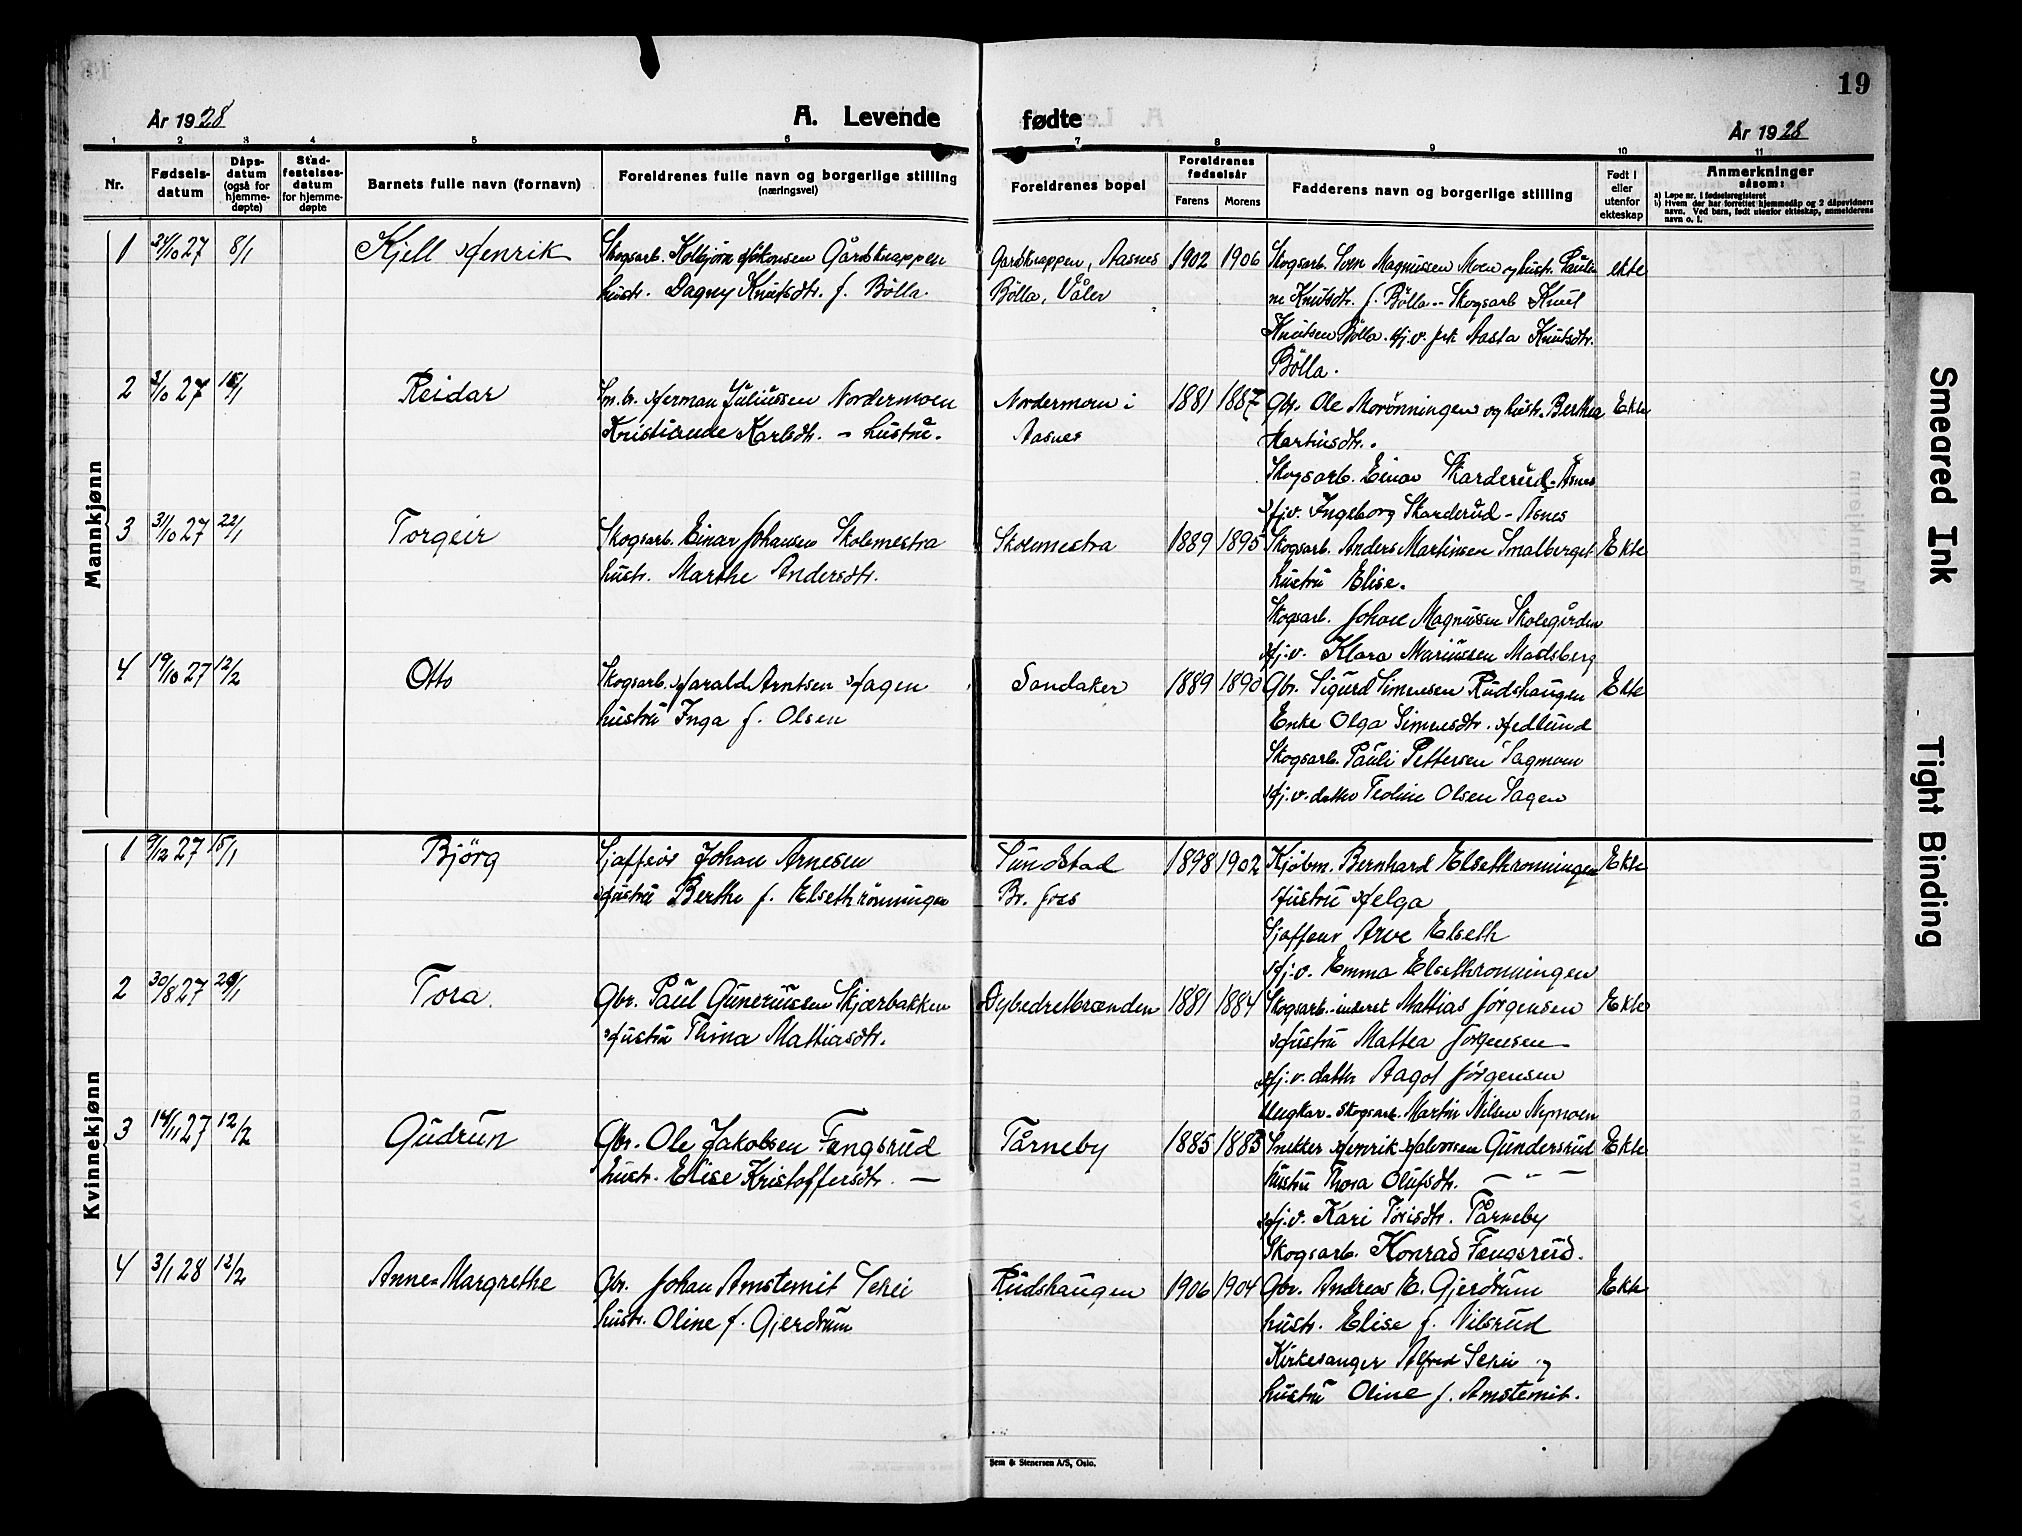 19
År 1928
A. Levende fødte
År 1928
1 2 3 4 5 6 7 8 9 10 11
Nr.
Fødselsdatum
Dåpsdatum (også for hjemmedøpte)
Stadfestelsesdatum for hjemmedøpte
Barnets fulle navn (fornavn)
Foreldrenes fulle navn og borgerlige stilling (næringsvei)
Foreldrenes bopel
Foreldrenes fødselsår
Farens Morens
Fadderens navn og borgerlige stilling
Født i eller utenfor ekteskap
Anmerkninger såsom:
a) Løpe nr. i fødselsregisteret
b) Hvem der har forrettet hjemmedåp og 2 dåpsvidners navn. Ved barn, født utenfor ekteskap, anmelderens navn o. l.
Mannkjønn
1 8/1 Kjell Henrik Skogsarb. Kolbjørn Håkonsen Gårdknappen Gardknappen, Aasnes 1902 1906 Skogsarb. Sven Magnussen Moen og hustr. Pauli ekte
hustr. Dagny Knutsdtr. f. Bölla. Bölla, Våler ne Knutsdtr. f. Bölla - Skogsarb Knut
Knutsen Bölla. Hj.v. frk Aasta Knutsdtr.
Bölla.
2 27 Reidar Sm.br. Herman Juliussen Nordermoen Nordermoen i 1881 1887 Gbr. Ole Morönningen og hustr. Berthea Ekte
Kristiande Karlsdtr. - hustru. Aasnes Martinsdtr.
Skogsarb. Einar Skarderud - Åsnes
Hj.v. Ingeborg Skarderud - Åsnes
3 31/10 27 22/1 Torgeir Skogsarb. Einar Johansen Skolemestra Skolemestra 1889 1895 Skogsarb. Anders Martinsen Smalberget Ekte
hustr. Marthe Andersdtr. hustru Elise.
Skogsarb. Johan Magnussen Skolegården
Hj.v. Klara Mariussen Madsberg
4 19/10 27 12/2 Otto Skogsarb. Harald Arntsen Hagen Sandaker 1889 1890 Gbr. Sigurd Simensen Rudshaugen Ekte
hustru Inga f. Olsen Enke Olga Simensdtr. Hedlund
Skogsarb. Pauli Pettersen Sagmoen
Hj.v. datter Teoline Olsen Sagen
Kvinnekjønn
1 9/12 27 15/1 Björg Sjaffeur Johan Arnesen Sundstad 1898 1902 Kjöbm. Bernhard Elsethrønningen Ekte
Hustru Berthe f. Elsethrönningen Br. foss Hustru Helga
Sjaffeur Arve Elseth
Hj.v. Emma Elsethronningen
2 30/8 27 Tora. Gbr. Paul Gunerussen Skjærbakken Dybedretbrænden 1881 1884 Skogsarb. - inderst Mattias Jörgensen Ekte
Hustru Thina Mattiasdtr. Hustru Mattea Jörgensen
Hj.v. datter Aagot Jörgensen
Ungkar. Skogsarb. Martin Nilsen Nymoen
3 14/11 27 12/2 Gudrun Gbr. Ole Jakobsen Fengsrud Tårneby 1885 1883 Snekker Henrik Halvorsen Gundersrud Ekte
hustr. Elise Kristoffersdtr. — hustru Thora Olufsdtr. — " —
Hj.v. Kari Torisdtr. Tårneby
Skogsarb. Konrad Fengsrud.
4 3/1 28 12/2 Anne-Margrethe Gbr. Johan Amstemit Schei Rudshaugen 1906 1904 Gbr. Andreas E. Gjerdrum Ekte
hustr. Oline f. Gjerdrum hustr. Elise f. Nilsrud
Kirkesanger Alfred Schei og
hustru Oline f. Amstemit.
Sem & Stenersen A/S, Oslo.
Smeared Ink
Tight Binding